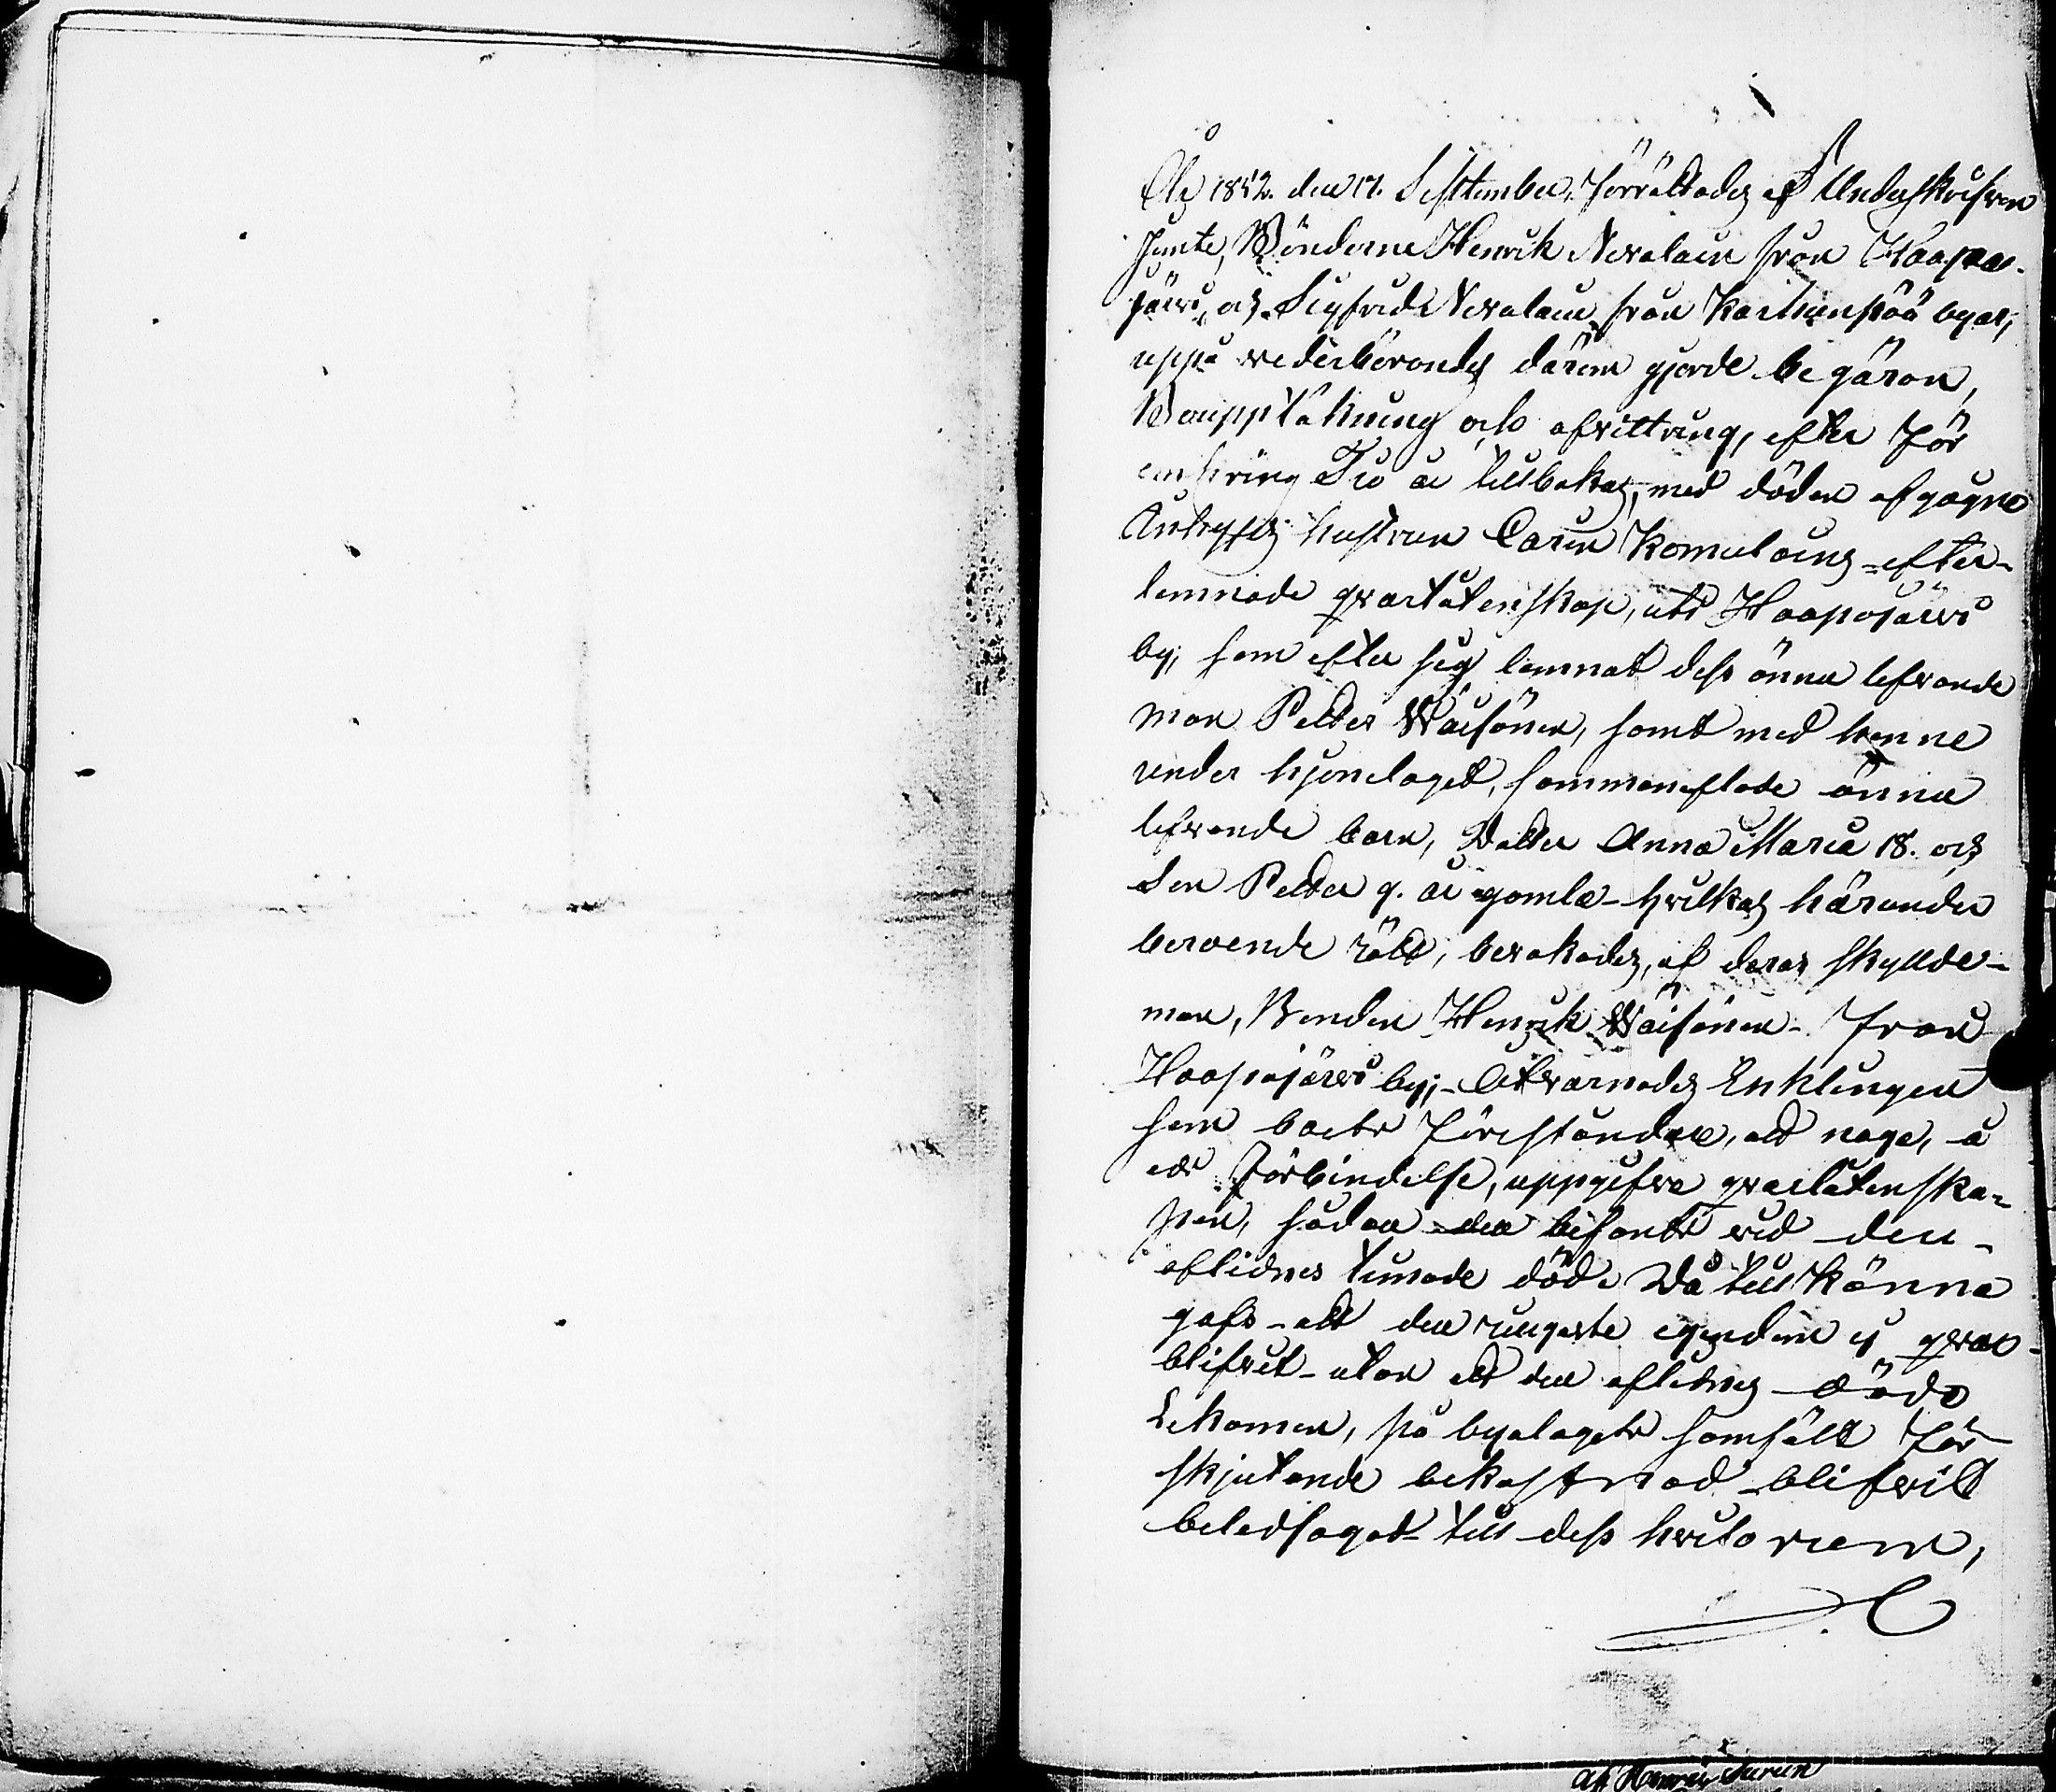 År 1852. den 17. September, förrättades af Underskrifven
jemte, Bönderne Henrik Nevalain från Haapa-
järvi, och Sigfrid Nevalain från Karhunpää byar,
uppå vederbörandes därom gjorde begäran,
Bouppteckning och afvittring, efter för
omkring Tio år tillbakas, med döden afgågne
Inhyses hustrun Carin Komulains efter-
lemnade qvarlåtenskap, uti Haapajärvi
by; som efter sig lemnat dess ännu lefvande
man Petter Väisänen, samt med henne
under hjonelaget, sammanaflade ännu
lefvande barn, Dotter Anna Maria 18. och
Son Petter 9. år gamla - hvilkas härunder
beroende rätt, bevakades, af deras skylde-
man, Bonden Henrik Wäisänen - från
Haapajärvi by; - Åtvarnades Enklingen
som boets föreståndare, att noga, å
eds förbindelse, uppgifva qvarlåtenska-
pen, sådan den befants vid den
aflidnes timade död. Då till känna
gafs - att den ringaste egendom ej qvar-
blifvit - utan att den aflidnes döda
Lekamen, på byalagets samfält för-
skjutande bekostnad - blifvit
beledsagad - till dess hvilorum,